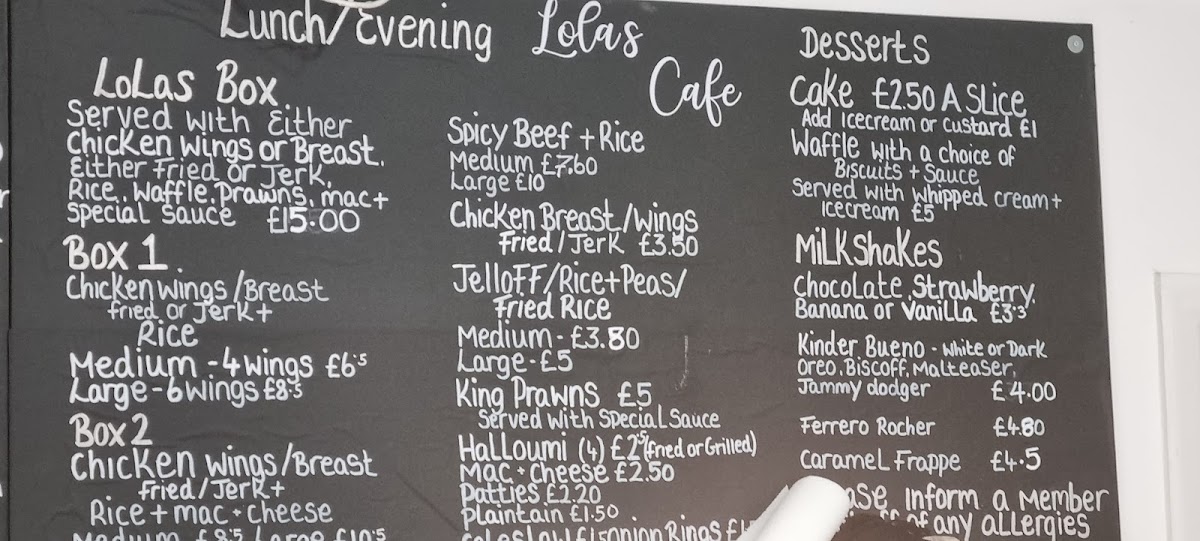 Lunch/Evening Lolas Cafe
LoLas Box
Served with Either
Chicken wings or Breast.
Either Fried or Jerk,
Rice, Waffle, Prawns, mac +
special sauce £15.00
Box 1
Chicken wings/Breast
fried or Jerk +
Rice
Medium - 4 wings £6.5
Large - 6 wings £8.5
Box 2
Chicken wings/Breast
fried/Jerk +
Rice + mac + cheese
Medium £8.5 / Large £10.5
Spicy Beef + Rice
Medium £7.60
Large £10
Chicken Breast/wings
Fried/Jerk £3.50
Jelloff/Rice + Peas/
Fried Rice
Medium - £3.80
Large - £5
King Prawns £5
Served with Special Sauce
Halloumi (4) £2.5 (fried or Grilled)
Mac + cheese £2.50
Patties £2.20
Plaintain £1.50
Coleslaw £1.5 onion Rings
Desserts
Cake £2.50 A Slice
Add Icecream or custard £1
Waffle with a choice of
Biscuits + Sauce
Served with whipped cream +
Icecream £5
Milkshakes
Chocolate, Strawberry,
Banana or Vanilla £3.3
Kinder Bueno - white or Dark
Oreo, Biscoff, Malteaser,
Jammy dodger £4.00
Ferrero Rocher £4.80
Caramel Frappe £4.5
inform a Member
of any allergies